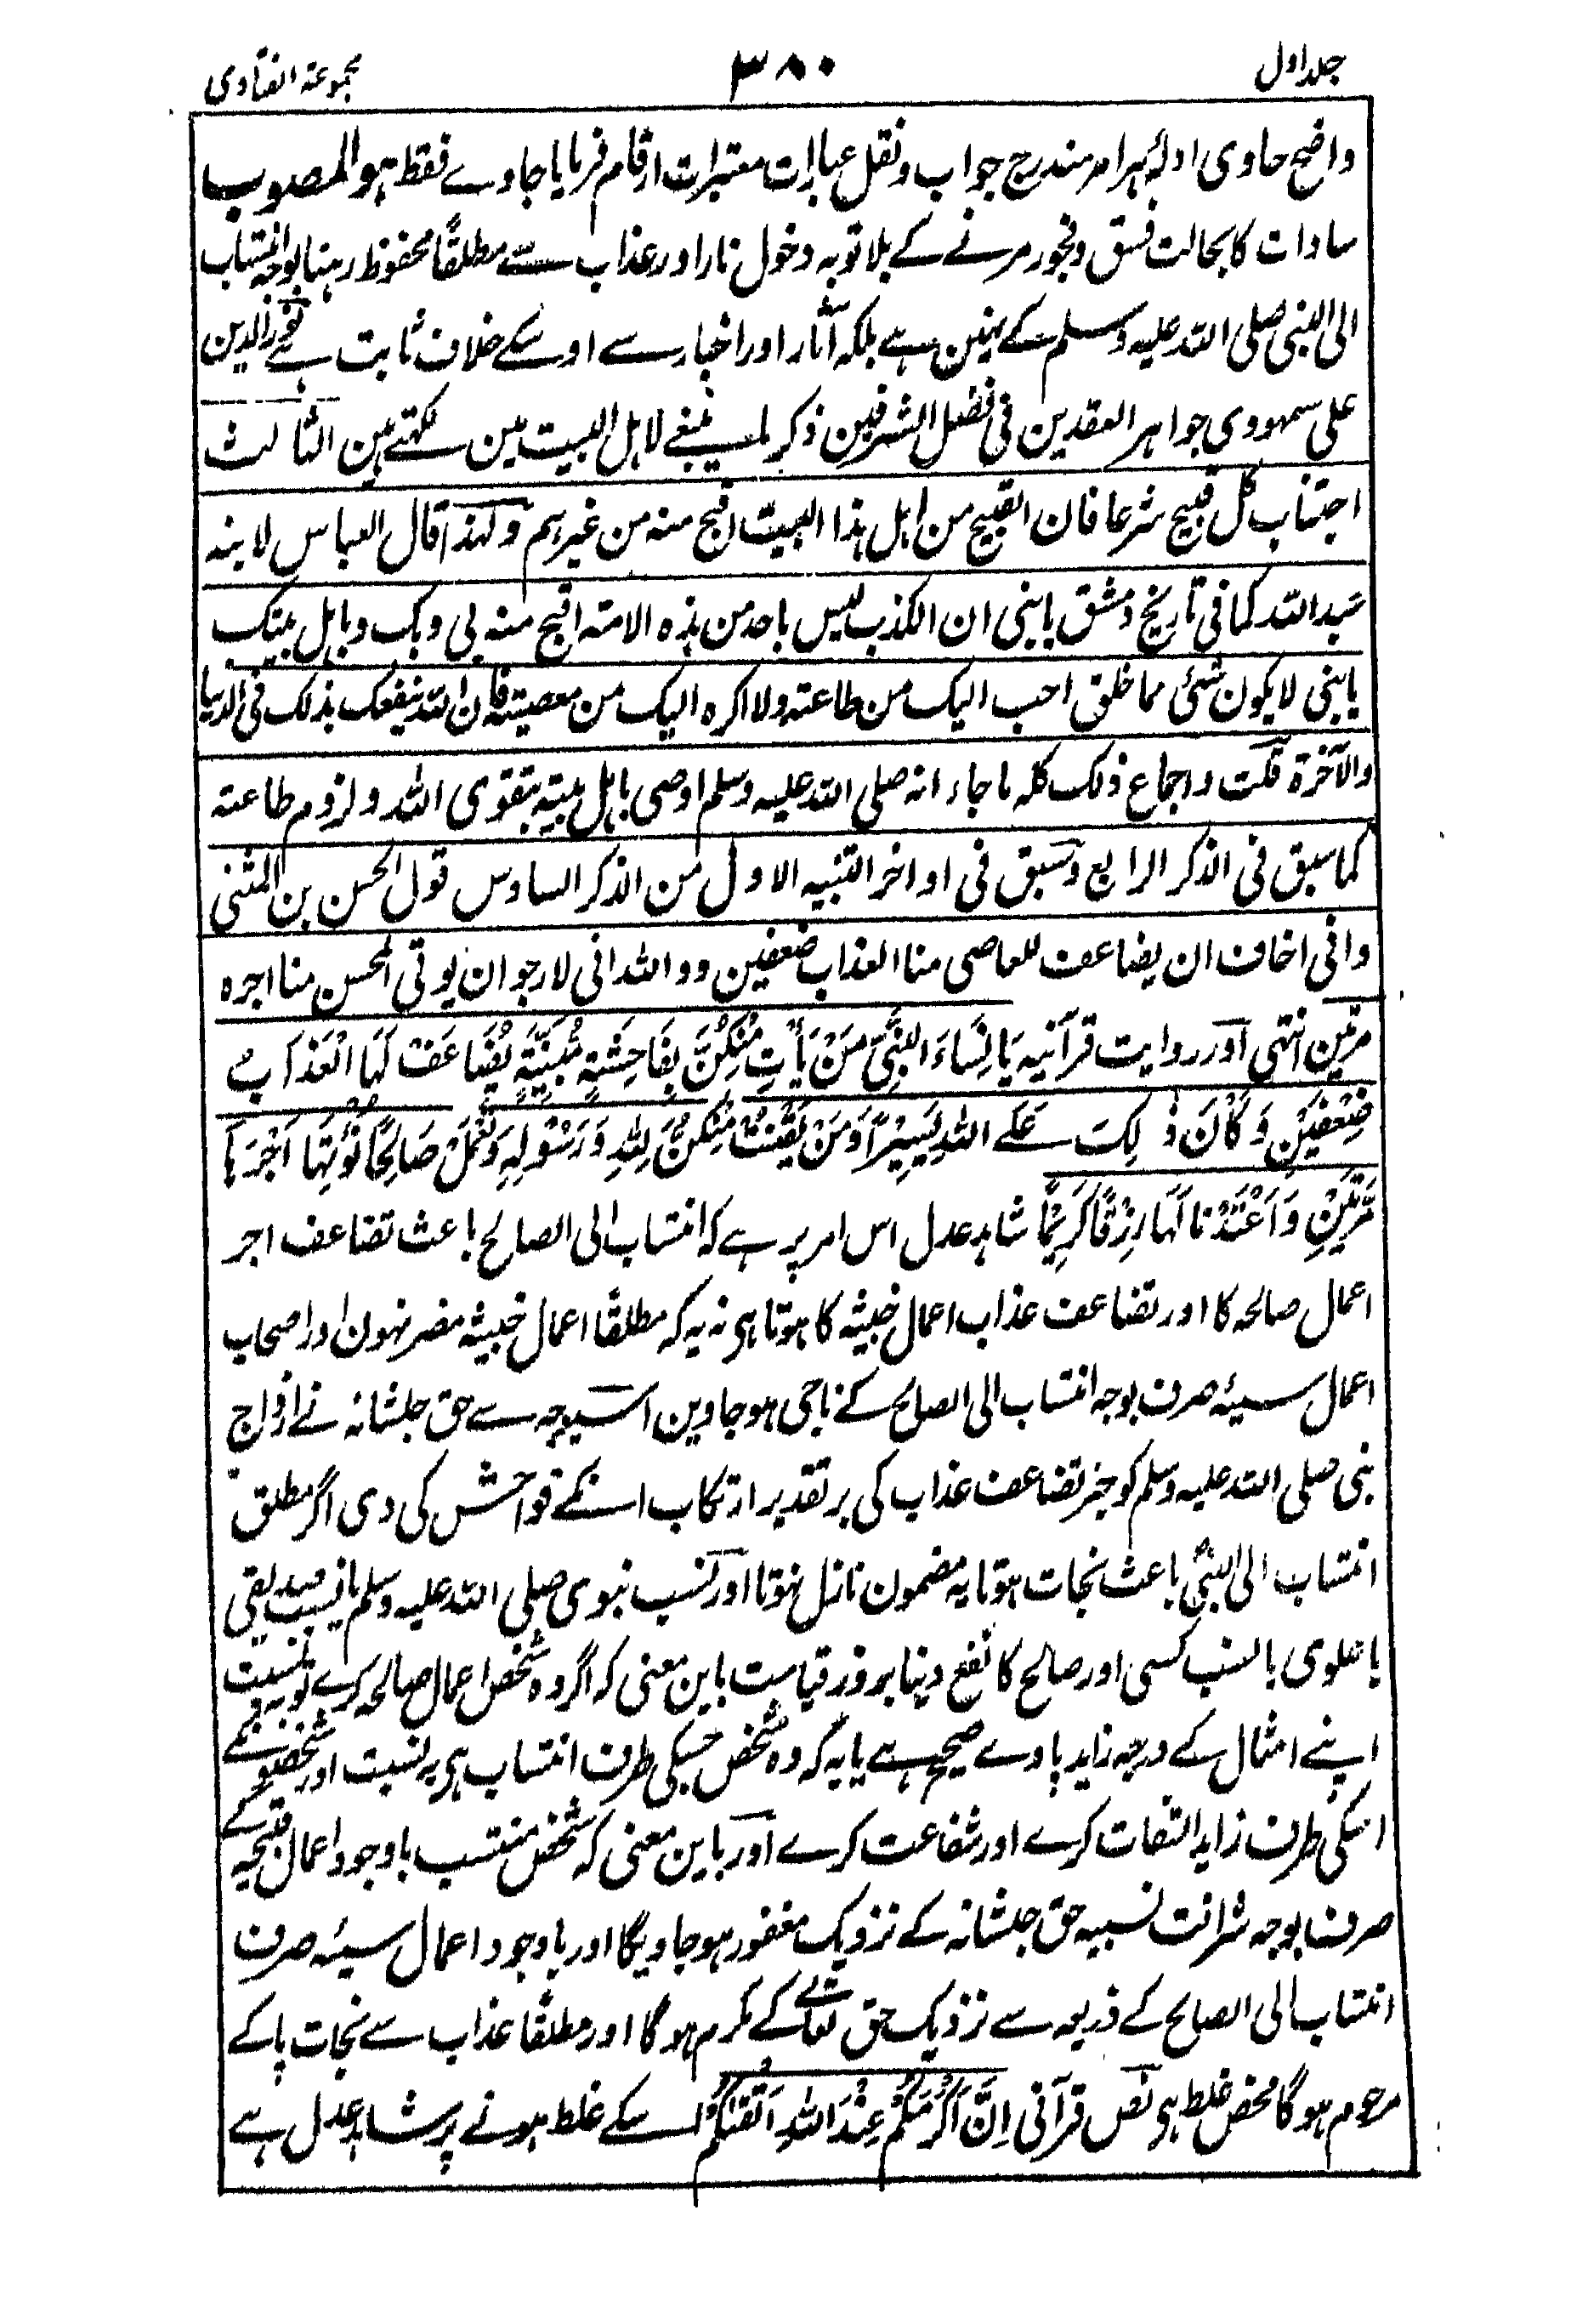 جلد اول
۳۸۰
مجموعۃ الفتاوی
واضح حاوی ادلۂ ہر امر مندرج جواب و نقل عبارات معتبرات ارقام فرمایا جاوے فقط ہو المصوب
سادات کا بحالت فسق و فجور مرنے کے بلا توبہ دخول نار اور عذاب سے مطلقًا محفوظ رہنا بوجہ انتساب
الی النبی صلی اللہ علیہ وسلم کے نہین ہے بلکہ آثار اور اخبار سے اوسکے خلاف ثابت ہے نور الدین
علی سمہودی جواہر العقدین فی فضل الشرفین ذکر ما ینبغے لاہل البیت مین لکھتے ہین الثالث
اجتناب کل قبیح شرعا فان القبیح من اہل ہذا البیت اقبح منہ من غیرہم ولہذا قال العباس لابنہ
عبداللہ کما فی تاریخ دمشق یابنی ان الکذب لیس باحد من ہذہ الامۃ اقبح منہ بی و بک و باہل بیتک
یابنی لا یکون شئی مما خلق احب الیک من طاعتہ ولا اکرہ الیک من معصیتہ فان اللہ ینفعک بذلک فی الدنیا
والآخرۃ قلت و اجماع ذلک کلہ ما جاء انہ صلی اللہ علیہ وسلم اوصی باہل بیتہ بتقوی اللہ و لزوم طاعتہ
کما سبق فی الذکر الرابع وسبق فی اواخر التنبیہ الاول من الذکر السادس قول الحسن بن المثنی
وانی اخاف ان یضاعف للعاصی منا العذاب ضعفین و واللہ انی لارجو ان یوتی المحسن منا اجرہ
مرتین انتہی اور روایت قرآنیہ یَا نِسَاءَ النَّبِیِّ مَنْ یَأْتِ مِنْکُنَّ بِفَاحِشَۃٍ مُبَیِّنَۃٍ یُضَاعَفْ لَہَا الْعَذَابُ
ضِعْفَیْنِ وَکَانَ ذٰلِکَ عَلَے اللّٰہِ یَسِیْرًا وَمَنْ یَقْنُتْ مِنْکُنَّ لِلّٰہِ وَرَسُوْلِہٖ وَتَعْمَلْ صَالِحًا نُؤْتِہَا اَجْرَہَا
مَرَّتَیْنِ وَاَعْتَدْنَا لَہَا رِزْقًا کَرِیْمًا شاہد عدل اس امر پر ہے کہ انتساب الی الصالح باعث تضاعف اجر
اعمال صالحہ کا اور تضاعف عذاب اعمال خبیثہ کا ہوتا ہی نہ یہ کہ مطلقًا اعمال خبیثہ مضر نہون اور اصحاب
اعمال سیئہ صرف بوجہ انتساب الی الصالح کے ناجی ہو جاوین اسیوجہ سے حق جلشانہ نے ازواج
نبی صلی اللہ علیہ وسلم کو خبر تضاعف عذاب کی بر تقدیر ارتکاب انکے فواحش کی دی اگر مطلق
انتساب الی النبی باعث نجات ہوتا یہ مضمون نازل نہوتا اور نسب نبوی صلی اللہ علیہ وسلم یا نسب صدیقی
یا علوی یا نسب کسی اور صالح کا نفع دینا بروز قیامت باین معنی کہ اگر وہ شخص اعمال صالحہ کرے تو بہ نسبت
اپنے امثال کے درجہ زاید پاوے صحیح ہے یا یہ کہ وہ شخص جسکی طرف انتساب ہی بہ نسبت اور شخصونکے
اسکی طرف زاید التفات کرے اور شفاعت کرے اور باین معنی کہ شخص منتسب باوجود اعمال قبیحہ کے
صرف بوجہ شرافت نسبیہ حق جلشانہ کے نزدیک مغفور ہو جاویگا اور باوجود اعمال سیئہ صرف
انتساب الی الصالح کے ذریعہ سے نزدیک حق تعالے کے مکرم ہوگا اور مطلقًا عذاب سے نجات پاکے
مرحوم ہوگا محض غلط ہی نص قرآنی اِنَّ اَکْرَمَکُمْ عِنْدَ اللّٰہِ اَتْقٰکُمْ اسکے غلط ہونے پر شاہد عدل ہے